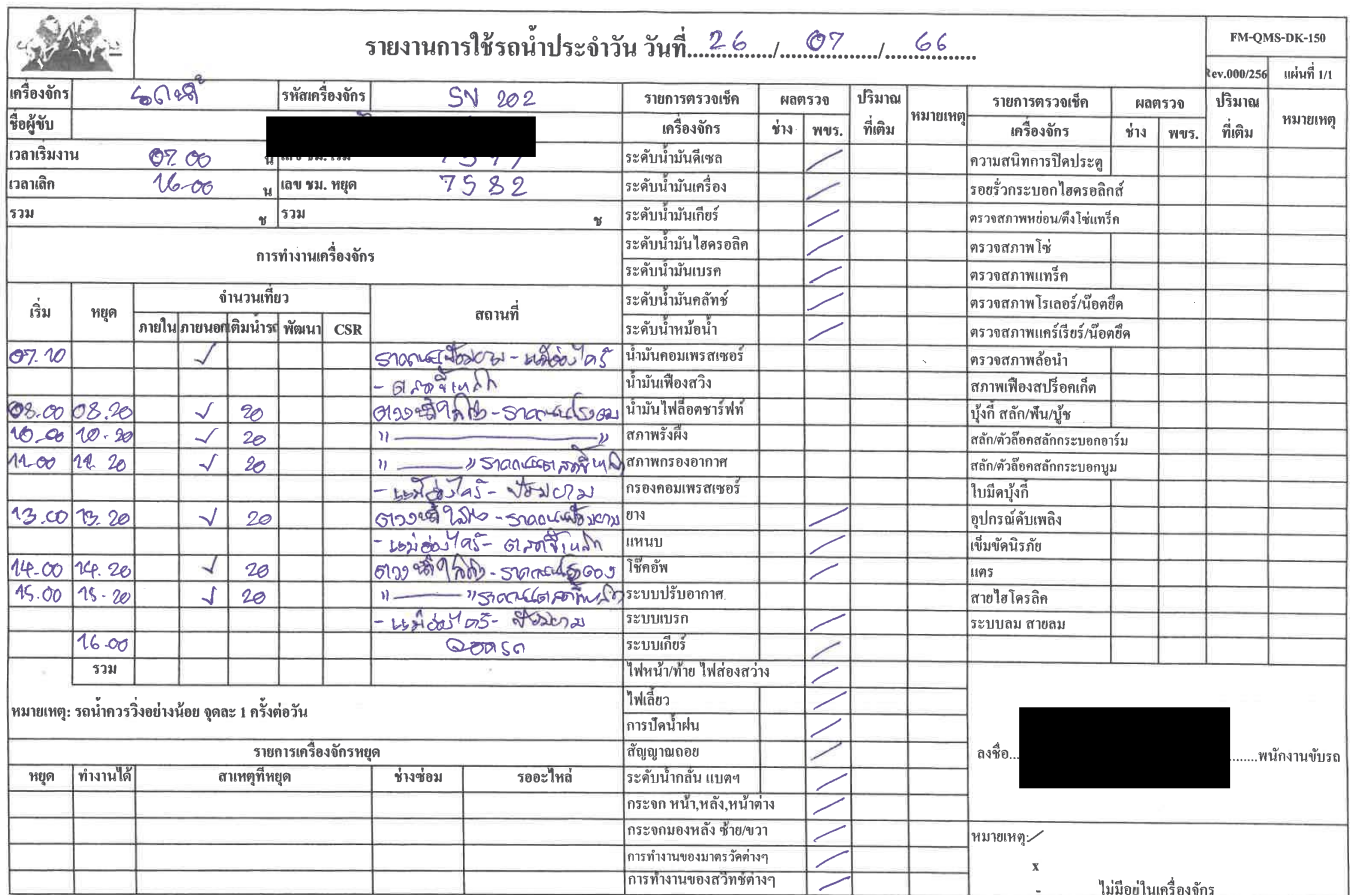 รายงานการใช้รถน้ำประจำวัน วันที่....26....../....07....../....66.......
FM-QMS-DK-150
Rev.000/256 แผ่นที่ 1/1
เครื่องจักร รถน้ำ รหัสเครื่องจักร SN 202
ชื่อผู้ขับ
เวลาเริ่มงาน 07.00 น
เวลาเลิก 16-00 น เลข ชม. หยุด 7582
รวม ช รวม ช
การทำงานเครื่องจักร
เริ่ม หยุด จำนวนเที่ยว สถานที่
ภายใน ภายนอก เติมน้ำรถ พัฒนา CSR
07.10 ✓
08.00 08.20 ✓ 20
10.00 10.20 ✓ 20 " ——— "
11.00 11.20 ✓ 20
13.00 13.20 ✓ 20
14.00 14.20 ✓ 20
15.00 15.20 ✓ 20
16.00 จอดรถ
รวม
หมายเหตุ: รถน้ำควรวิ่งอย่างน้อย จุดละ 1 ครั้งต่อวัน
รายการเครื่องจักรหยุด
หยุด ทำงานได้ สาเหตุที่หยุด ช่างซ่อม รออะไหล่
รายการตรวจเช็ค ผลตรวจ ปริมาณ หมายเหตุ
เครื่องจักร ช่าง พขร. ที่เติม
ระดับน้ำมันดีเซล /
ระดับน้ำมันเครื่อง /
ระดับน้ำมันเกียร์ /
ระดับน้ำมันไฮดรอลิค /
ระดับน้ำมันเบรค /
ระดับน้ำมันคลัทช์ /
ระดับน้ำหม้อน้ำ /
น้ำมันคอมเพรสเซอร์
น้ำมันเฟืองสวิง
น้ำมันไฟล็อตชาร์ฟท์
สภาพรังผึ้ง
สภาพกรองอากาศ
กรองคอมเพรสเซอร์
ยาง /
แหนบ /
โช๊คอัพ /
ระบบปรับอากาศ
ระบบเบรก /
ระบบเกียร์ /
ไฟหน้า/ท้าย ไฟส่องสว่าง /
ไฟเลี้ยว /
การปัดน้ำฝน /
สัญญาณถอย /
ระดับน้ำกลั่น แบตฯ /
กระจก หน้า,หลัง,หน้าต่าง /
กระจกมองหลัง ซ้าย/ขวา /
การทำงานของมาตรวัดต่างๆ /
การทำงานของสวิทช์ต่างๆ /
รายการตรวจเช็ค ผลตรวจ ปริมาณ หมายเหตุ
เครื่องจักร ช่าง พขร. ที่เติม
ความสนิทการปิดประตู
รอยรั่วกระบอกไฮดรอลิกส์
ตรวจสภาพหย่อน/ตึงโซ่แทร็ค
ตรวจสภาพโซ่
ตรวจสภาพแทร็ค
ตรวจสภาพโรเลอร์/น๊อตยึด
ตรวจสภาพแคร์เรียร์/น๊อตยึด
ตรวจสภาพล้อนำ
สภาพเฟืองสปร็อคเก็ต
บุ้งกี๋ สลัก/ฟัน/บู้ช
สลัก/ตัวล๊อคสลักกระบอกอาร์ม
สลัก/ตัวล๊อคสลักกระบอกบูม
ใบมีดบุ้งกี๋
อุปกรณ์ดับเพลิง
เข็มขัดนิรภัย
แตร
สายไฮโดรลิค
ระบบลม สายลม
ลงชื่อ... ........พนักงานขับรถ
หมายเหตุ: /
x
- ไม่มีอยู่ในเครื่องจักร